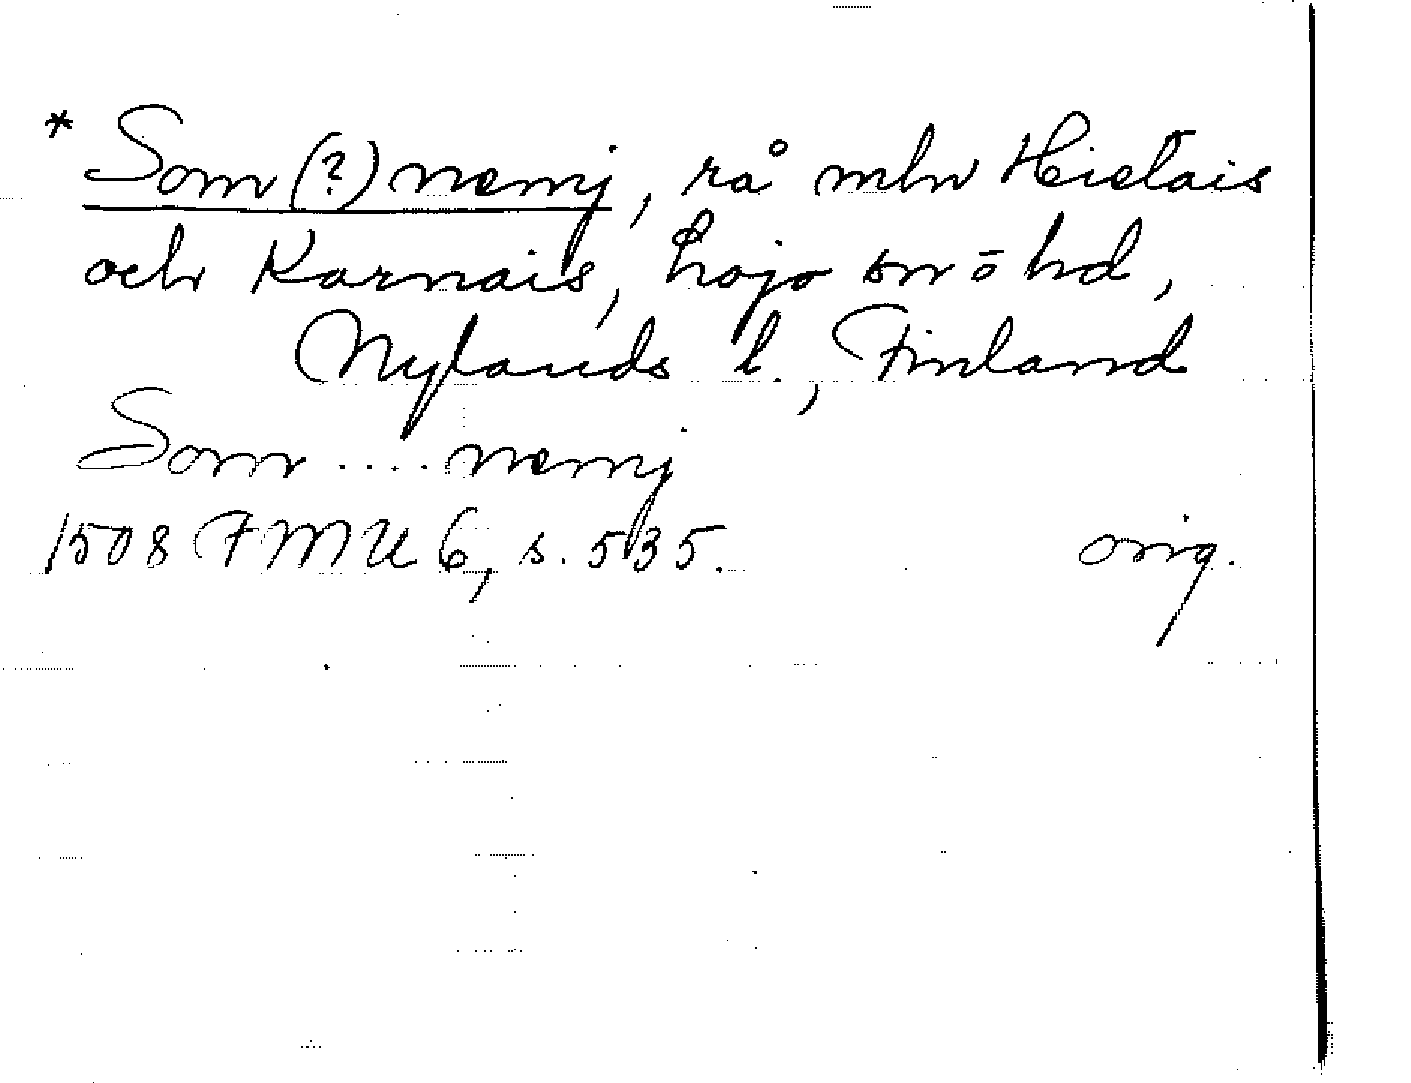 * Som(?)nemj, rå mln Hietais
och Karnais, Lojo sn o hd,
Nylands l., Finland
Som .... nemj
1508 FMU 6, s. 535. orig.